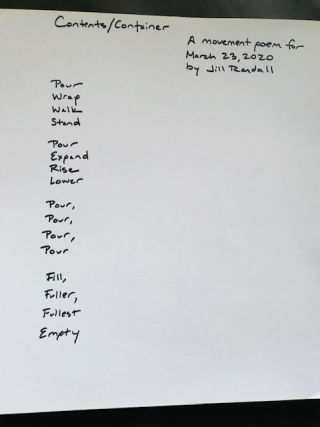 Contents/Container
A movement poem for
March 23, 2020
by Jill Randall
Pour
Wrap
Walk
Stand
Pour
Expand
Rise
Lower
Pour,
Pour,
Pour,
Pour
Fill,
Fuller,
Fullest
Empty